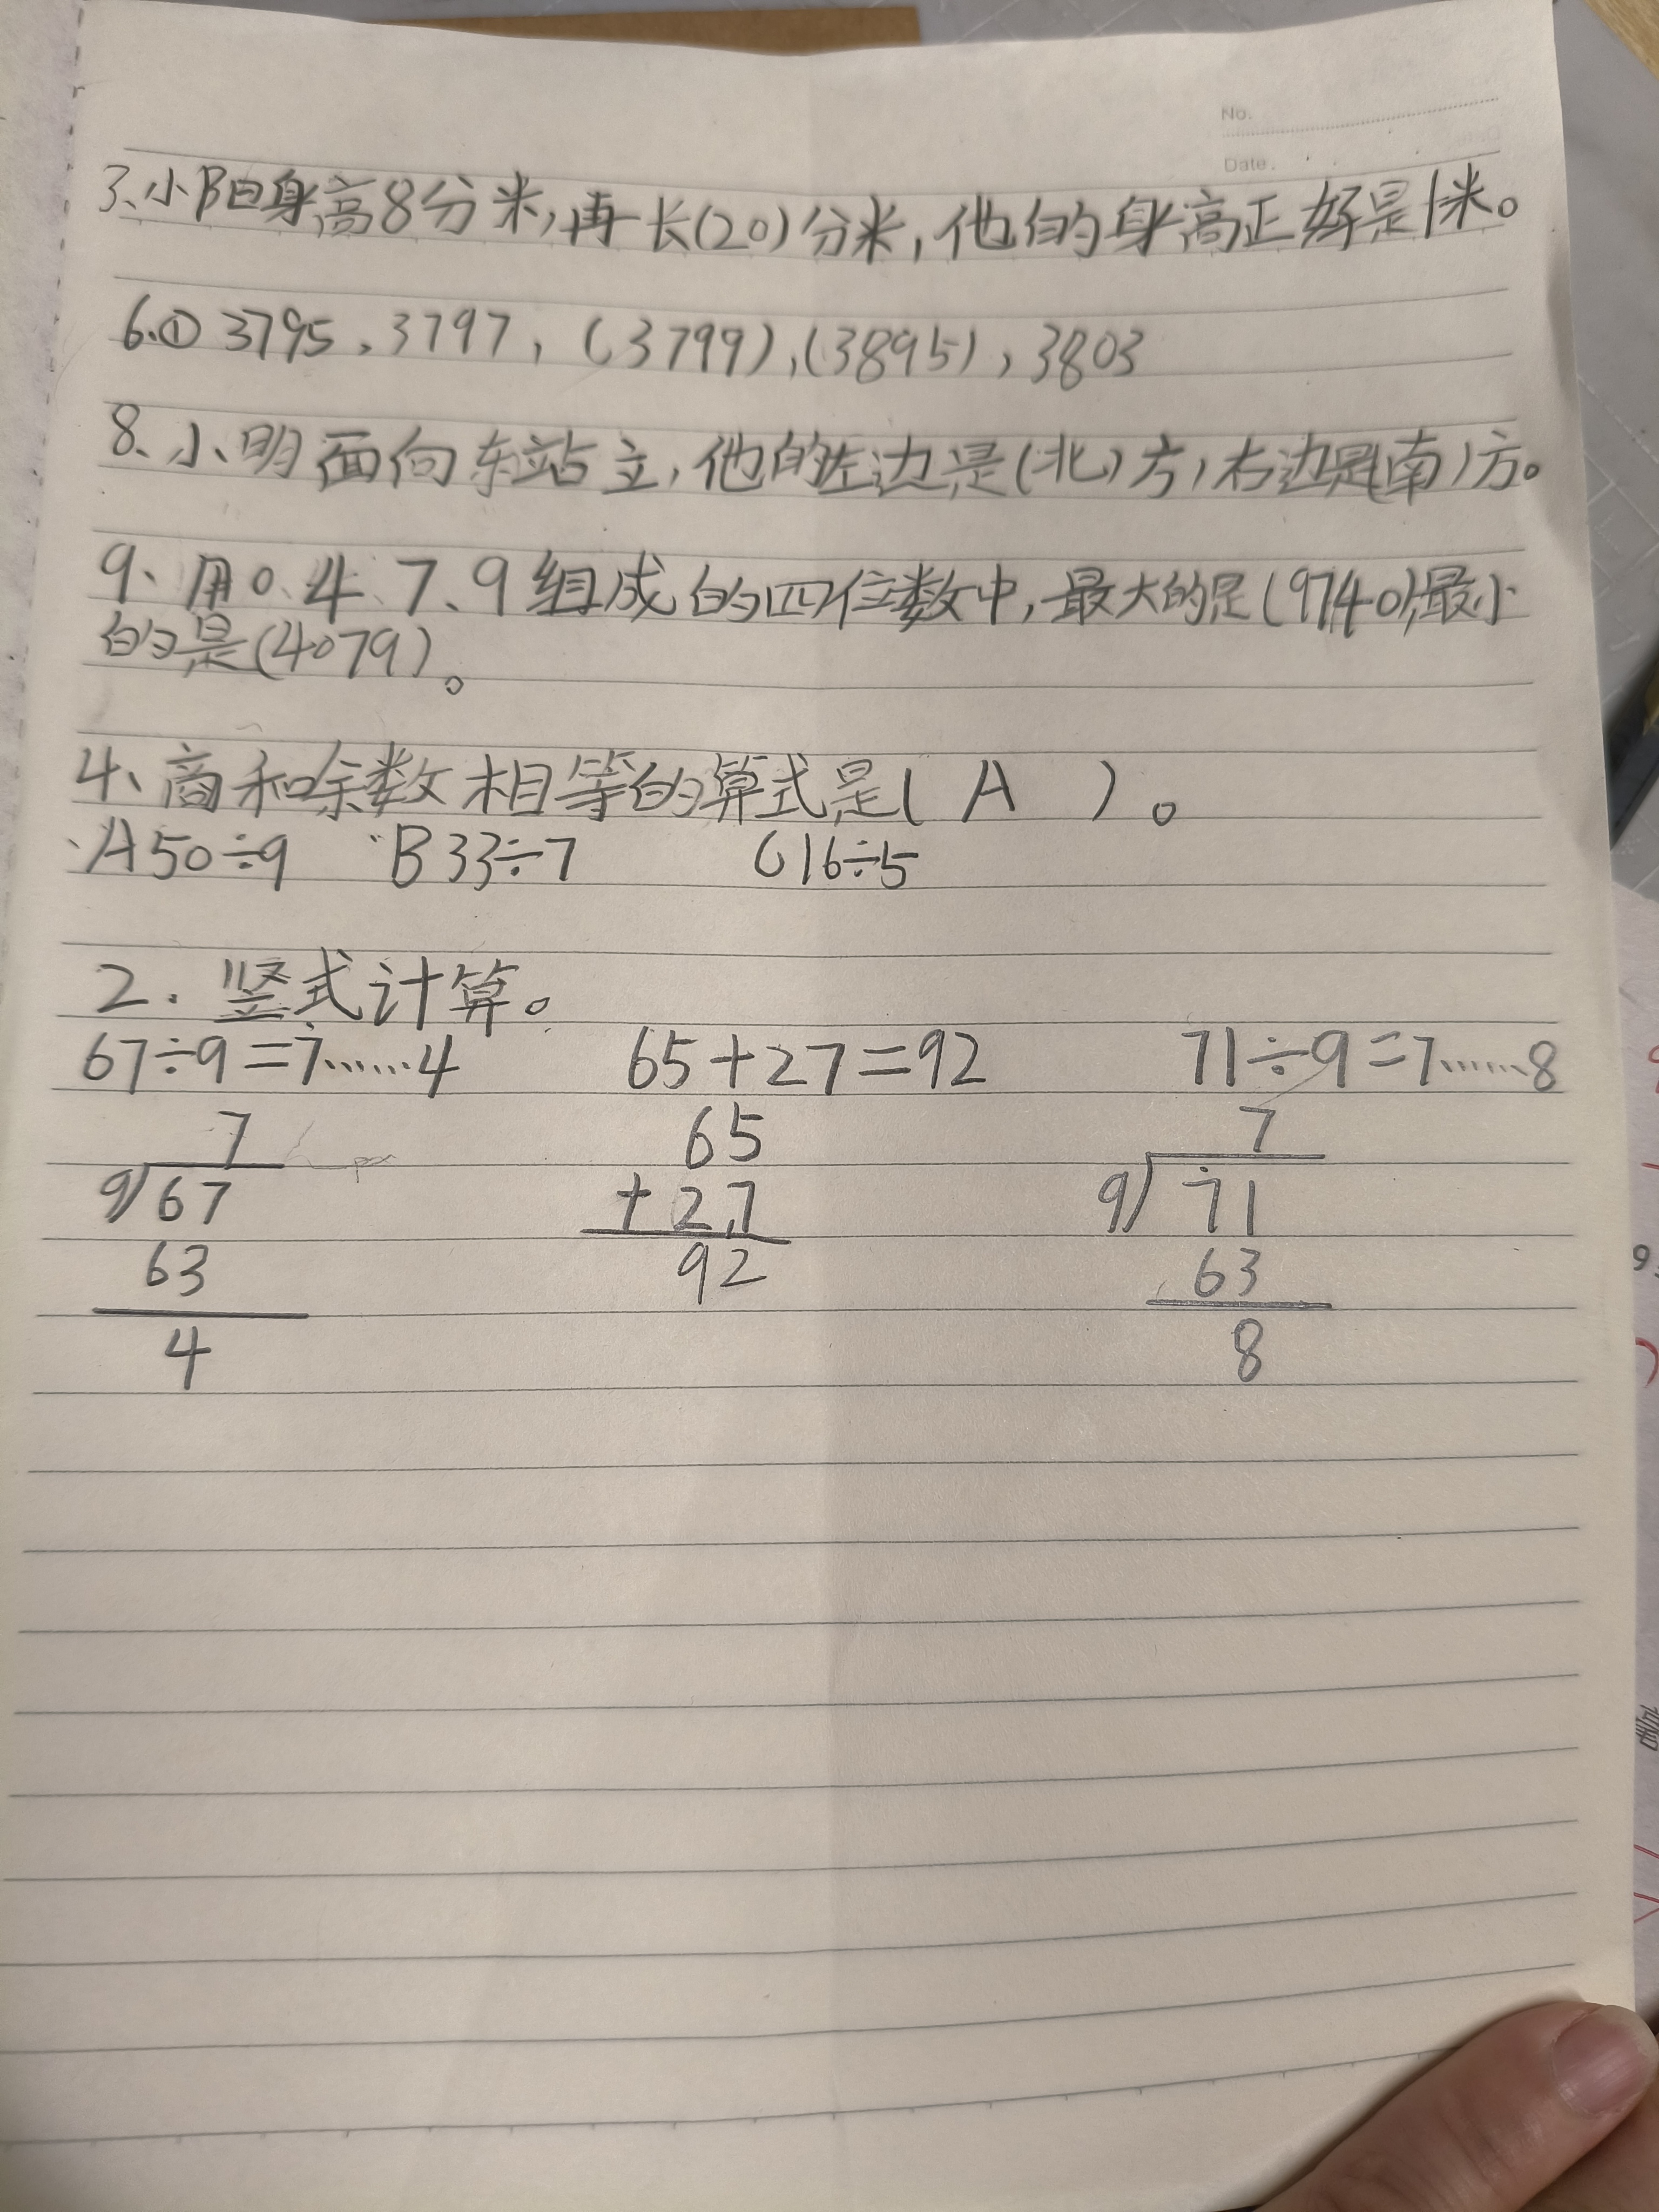 No.
Date.
3、小阳身高8分米,再长(20)分米,他的身高正好是1米。
6、① 3795、3797,(3799),(3895),3803
8、小明面向东站立,他的左边是(北)方,右边是(南)方。
9、用0、4、7、9组成的四位数中,最大的是(9740),最小
的是(4079)。
4、商和余数相等的算式是( A )。
A50÷9 B33÷7 C16÷5
2.竖式计算。
67÷9=7……4 65+27=92 71÷9=7……8
7 65 7
9)67 +27 9)71
63 92 63
4 8